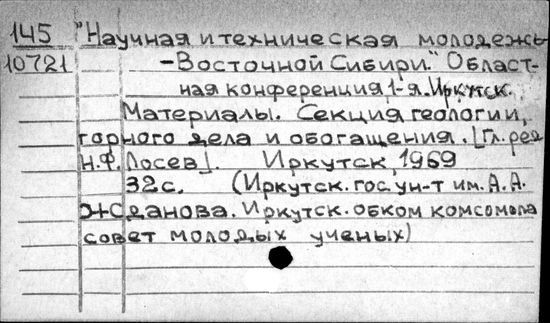 145 "Научная и техническая молодежь
10721 -Восточной Сибири." Област-
ная конференция, 1-я. Иркутск.
Материалы. Секция геологии,
горного дела и обогащения. [Гл. ред.
Н.Ф. Лосев]. Иркутск, 1969
32с. (Иркутск. гос. ун-т им. А.А.
Жданова. Иркутск. обком комсомола
совет молодых ученых)